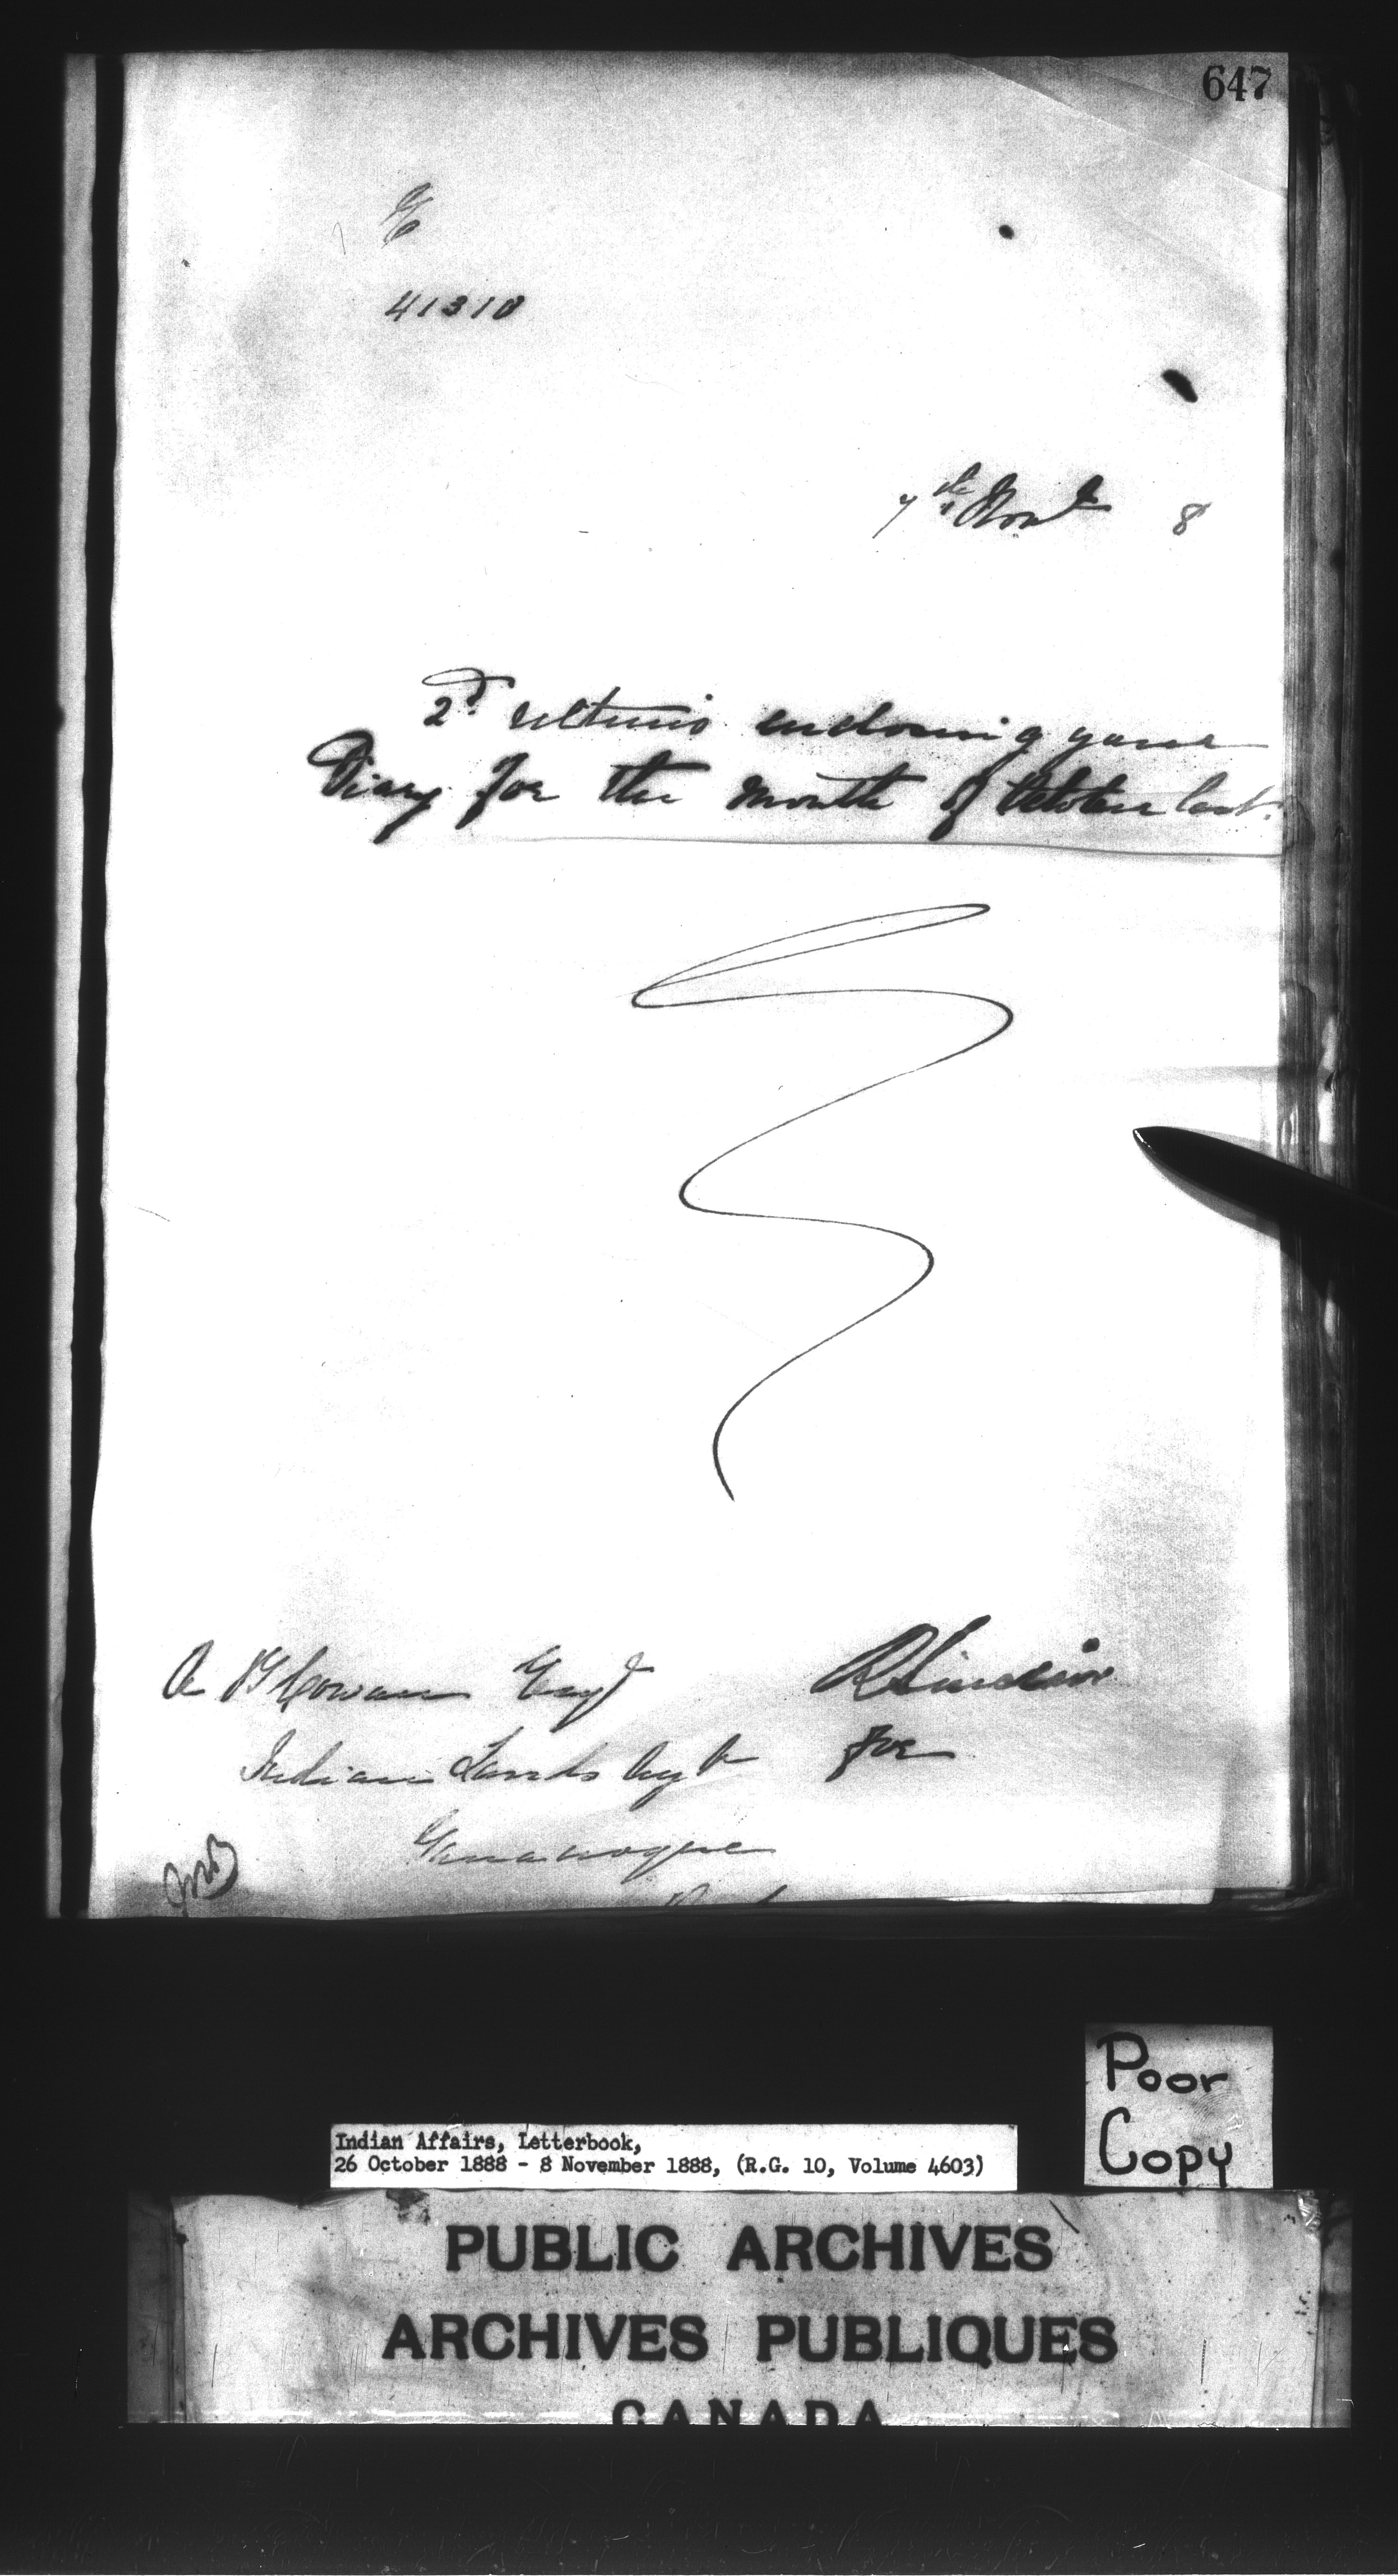 647
41310
7th Novr 8
2d ultimo enclosing your
Diary for the month of October last.
R Sinclair
for
A B Cowan Esqr
Indian Lands Agt
Gananoque
Poor
Copy
Indian Affairs, Letterbook,
26 October 1888 - 8 November 1888, (R.G. 10, Volume 4603)
PUBLIC ARCHIVES
ARCHIVES PUBLIQUES
CANADA